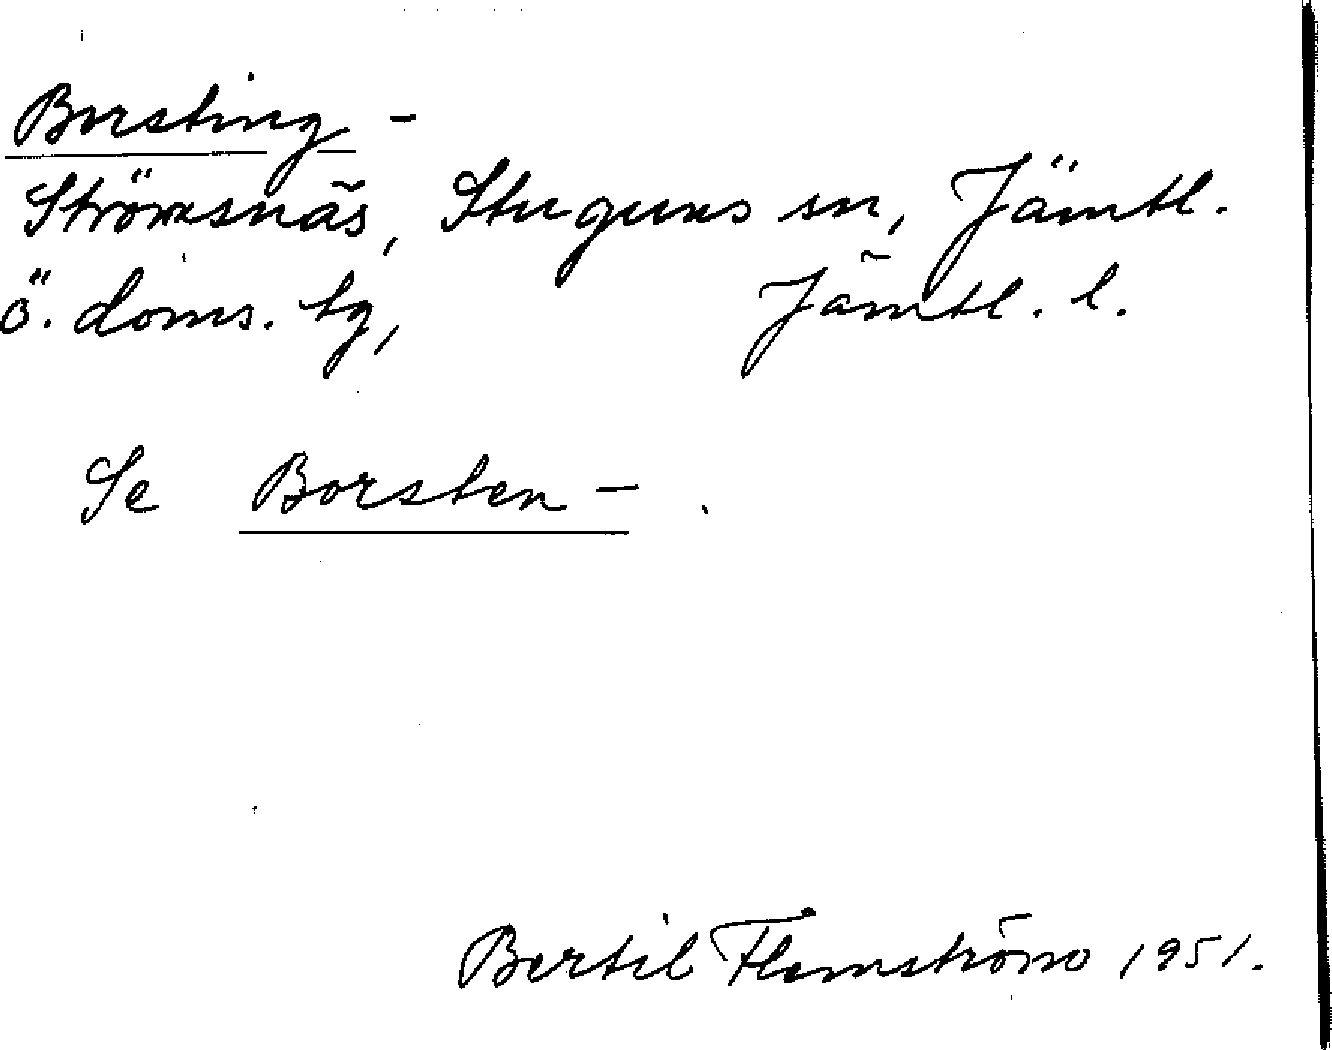 Borsting -
Strömsnäs, Stuguns sn, Jämtl.
ö. doms. tg, Jämtl. l.
Se Borsten - .
Bertil Flemström 1951.